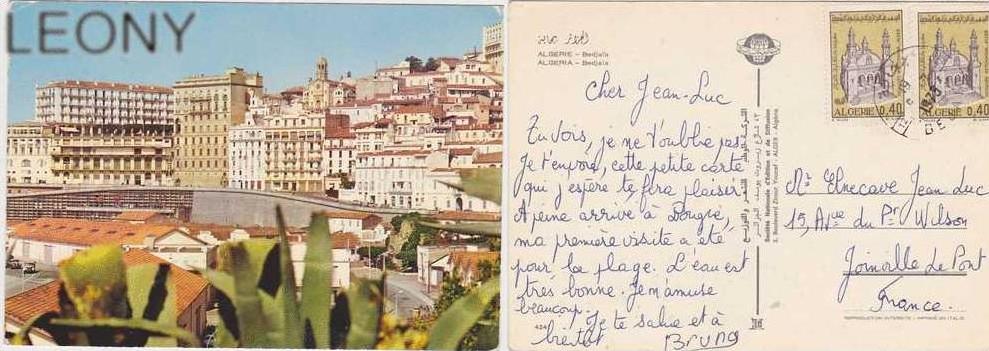 LEONY
ALGERIE – Bedjaïa
ALGERIA – Bedjaia
Cher Jean-Luc
Tu vois, je ne t'oublie pas.
Je t'envoie cette petite carte
qui j'espère te fera plaisir.
A peine arrivé à Bougie,
ma première visite a été
pour la plage. L'eau est
très bonne. Je m'amuse
beaucoup.
Je te salue et à
bientôt Bruno
Société Nationale d'Edition et de Diffusion
ALGERIE 0,40
ALGERIE 0,40
Mr Etnecave Jean Luc
15, Ave du Pt Wilson
Joinville Le Pont
France
REPRODUCTION INTERDITE - IMPRIMÉ EN ITALIE